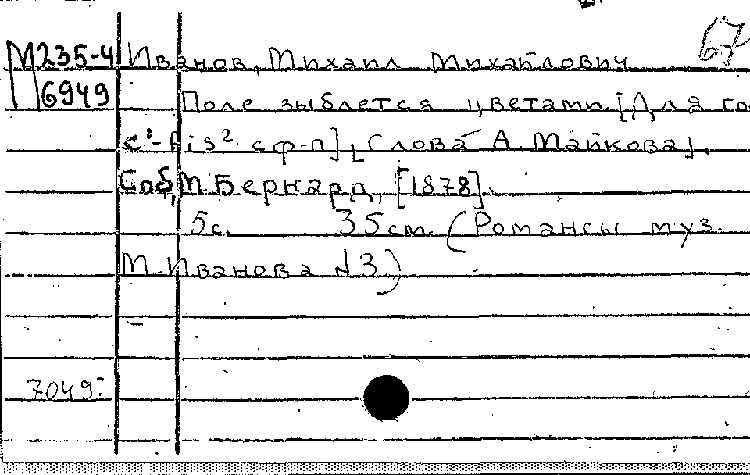 67
М235-4 Иванов, Михаил Михайлович
6949 Поле зыблется цветами [Для го
c¹-fis² с ф-п], [Слова А. Майкова].
Спб, М. Бернард, [1878].
5с. 35см. (Романсы муз.
М. Иванова №3)
7049: